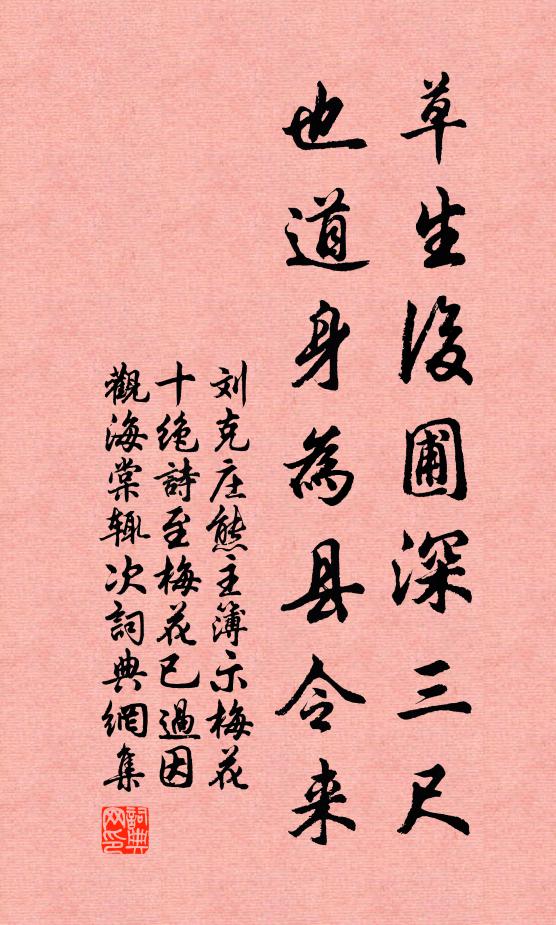 草生後圃深三尺
也道身為县令来
刘克庄熊主簿示梅花
十絶詩至梅花已過因
觀海棠辄次詞典網集
詞典
网印